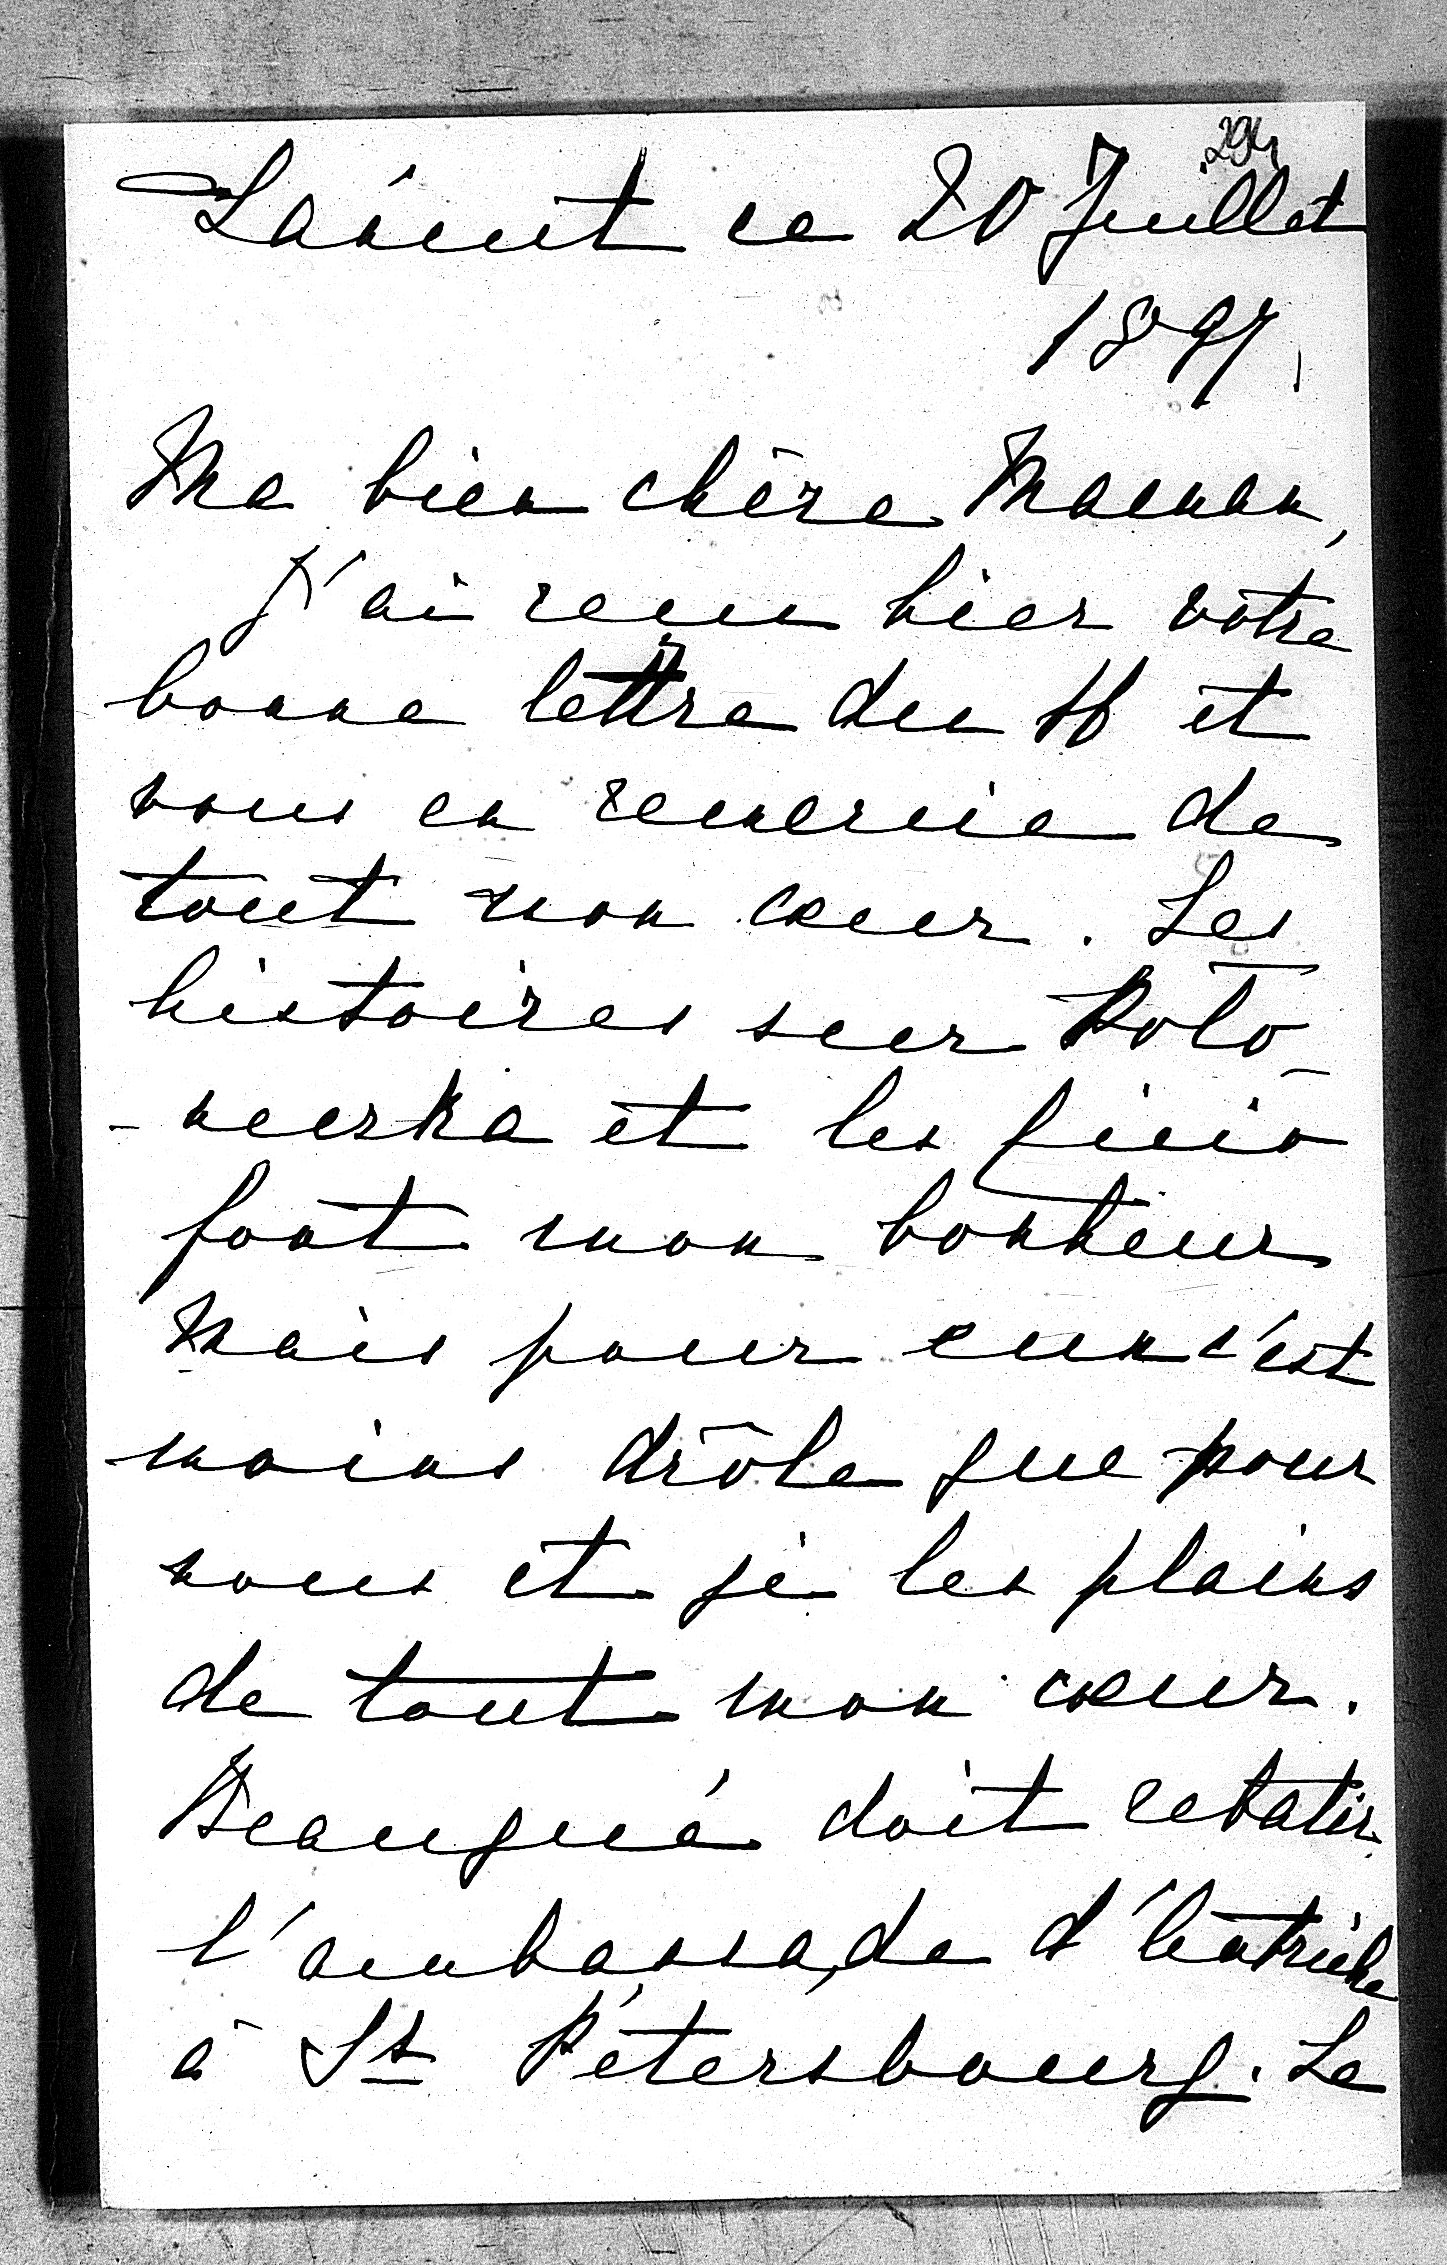 294
Łańcut ce 20 Juillet
1897.
Ma bien chère Maman,
J'ai reçu hier votre
bonne lettre du 16 et
vous en remercie de
tout mon cœur. Les
histoires sur Poto
et les
font mon bonheur
Mais pour eux c'est
moins drôle que pour
nous et je les plains
de tout mon cœur.
doit rebatir
l'ambassade d'Autriche
à St Pétersbourg. Le